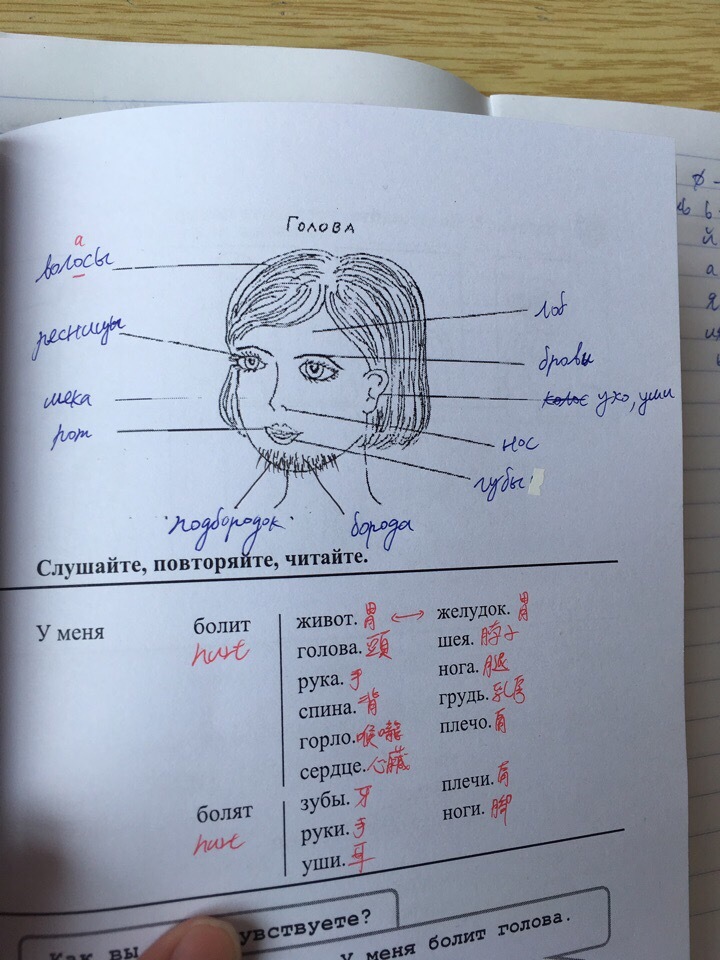 Голова
а
волосы
ресницы
щека
рот
лоб
бровы
ухо, уши
нос
губы
подбородок
борода
Слушайте, повторяйте, читайте.
У меня болит живот. 胃 ↔ желудок. 胃
hurt голова. 頭 шея. 脖子
рука. 手 нога. 腿
спина. 背 грудь. 乳房
горло. 喉嚨 плечо. 肩
сердце. 心臟
болят зубы. 牙 плечи. 肩
hurt руки. 手 ноги. 腳
уши. 耳
Как вы увствуете?
У меня болит голова.